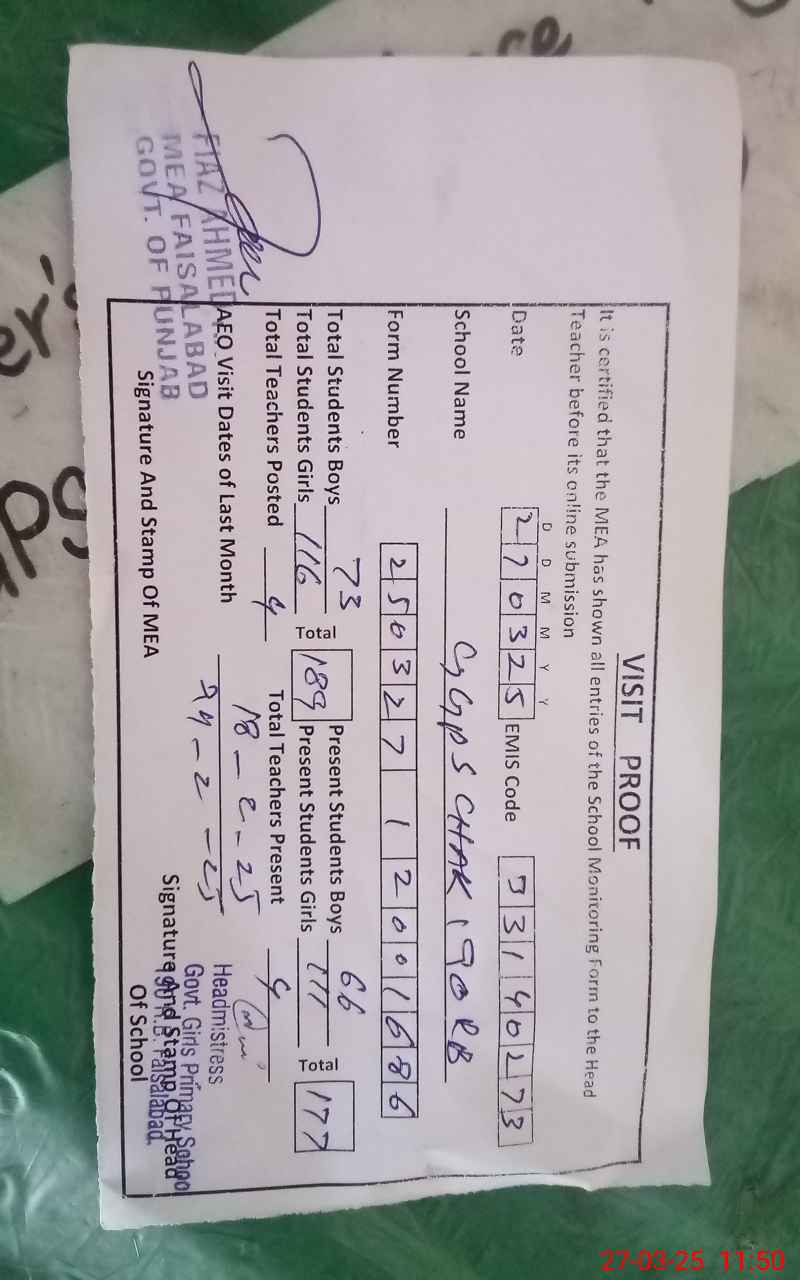 VISIT PROOF
It is certified that the MEA has shown all entries of the School Monitoring Form to the Head
Teacher before its online submission
D D M M Y Y
Date 270325 EMIS Code 33140273
School Name GGPS CHAK 190 RB
Form Number 25032712001686
Total Students Boys 73 Present Students Boys 66
Total Students Girls 116 Total 189 Present Students Girls 111 Total 177
Total Teachers Posted 4 Total Teachers Present 4
AEO Visit Dates of Last Month 18-2-25
24-2-25
FIAZ AHMED
MEA FAISALABAD
GOVT. OF PUNJAB
Signature And Stamp Of MEA
Headmistress
Govt. Girls Primary School
190 R.B. Faisalabad.
Signature And Stamp Of Head
Of School
27-03-25 11:50